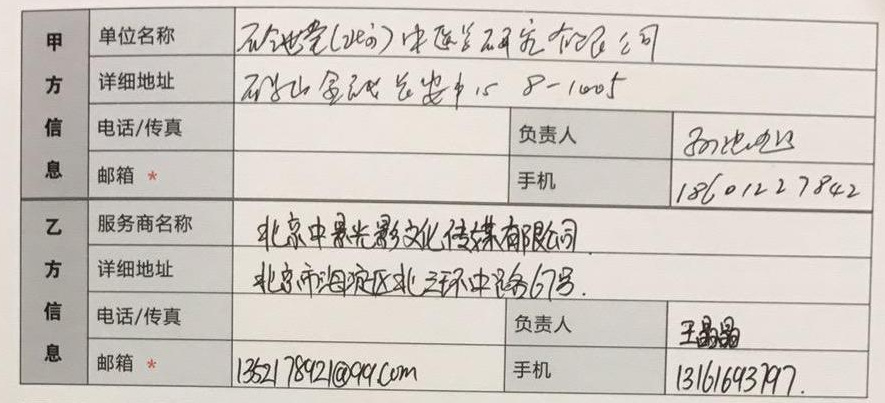 甲方信息
单位名称 (北京)中医学研究有限公司
详细地址 石景山金融长安中心 8-1005
电话/传真 负责人
邮箱 * 手机 18601227842
乙方信息
服务商名称 北京中景光影文化传媒有限公司
详细地址 北京市海淀区北三环中路67号.
电话/传真 负责人 王晶晶
邮箱 * 1352178921@qq.com 手机 13161693797.